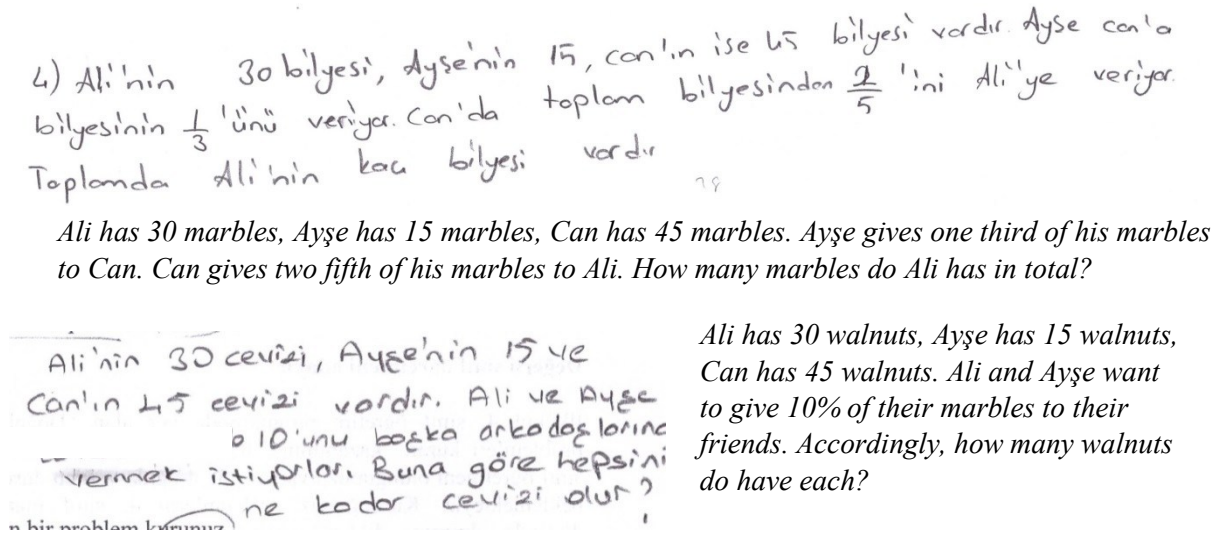 4) Ali'nin 30 bilyesi, Ayşe'nin 15, can'ın ise 45 bilyesi vardır. Ayşe can'a
bilyesinin 1/3 'ünü veriyor. Can'da toplam bilyesinden 2/5 'ini Ali'ye veriyor.
Toplamda Ali'nin kaç bilyesi vardır
Ali has 30 marbles, Ayşe has 15 marbles, Can has 45 marbles. Ayşe gives one third of his marbles
to Can. Can gives two fifth of his marbles to Ali. How many marbles do Ali has in total?
Ali'nin 30 cevizi, Ayşe'nin 15 ve
Can'ın 45 cevizi vardır. Ali ve Ayşe
10'unu başka arkadaşlarına
vermek istiyorlar. Buna göre hepsini
ne kadar cevizi olur?
n bir problem kurunuz
Ali has 30 walnuts, Ayşe has 15 walnuts,
Can has 45 walnuts. Ali and Ayşe want
to give 10% of their marbles to their
friends. Accordingly, how many walnuts
do have each?